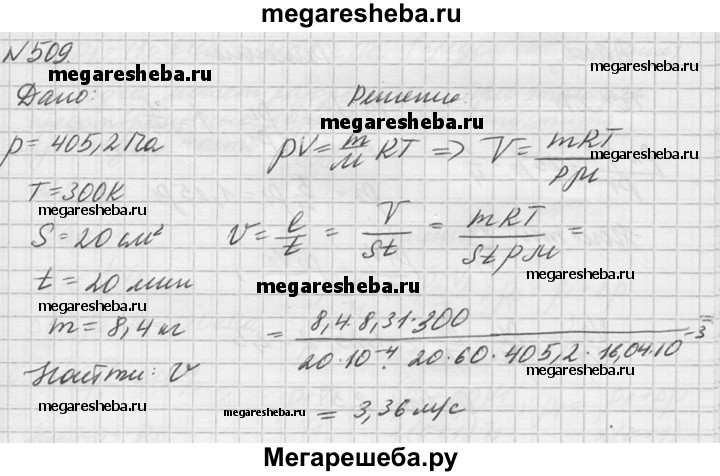 megaresheba.ru
N 509.
megaresheba.ru
megaresheba.ru
Дано:
Решение
megaresheba.ru
p = 405,2 Па
pV = m/M RT => V = mRT/pM
megaresheba.ru
T = 300К
megaresheba.ru
S = 20 см²
v = l/t = V/St = mRT/StpM =
megaresheba.ru
t = 20 мин
megaresheba.ru
m = 8,4 кг
= 8,4·8,31·300 / 20·10⁻⁴·20·60·405,2·16,04·10⁻³ =
Найти: v
megaresheba.ru
megaresheba.ru
= 3,36 м/с
megaresheba.ru
Мегарешеба.ру